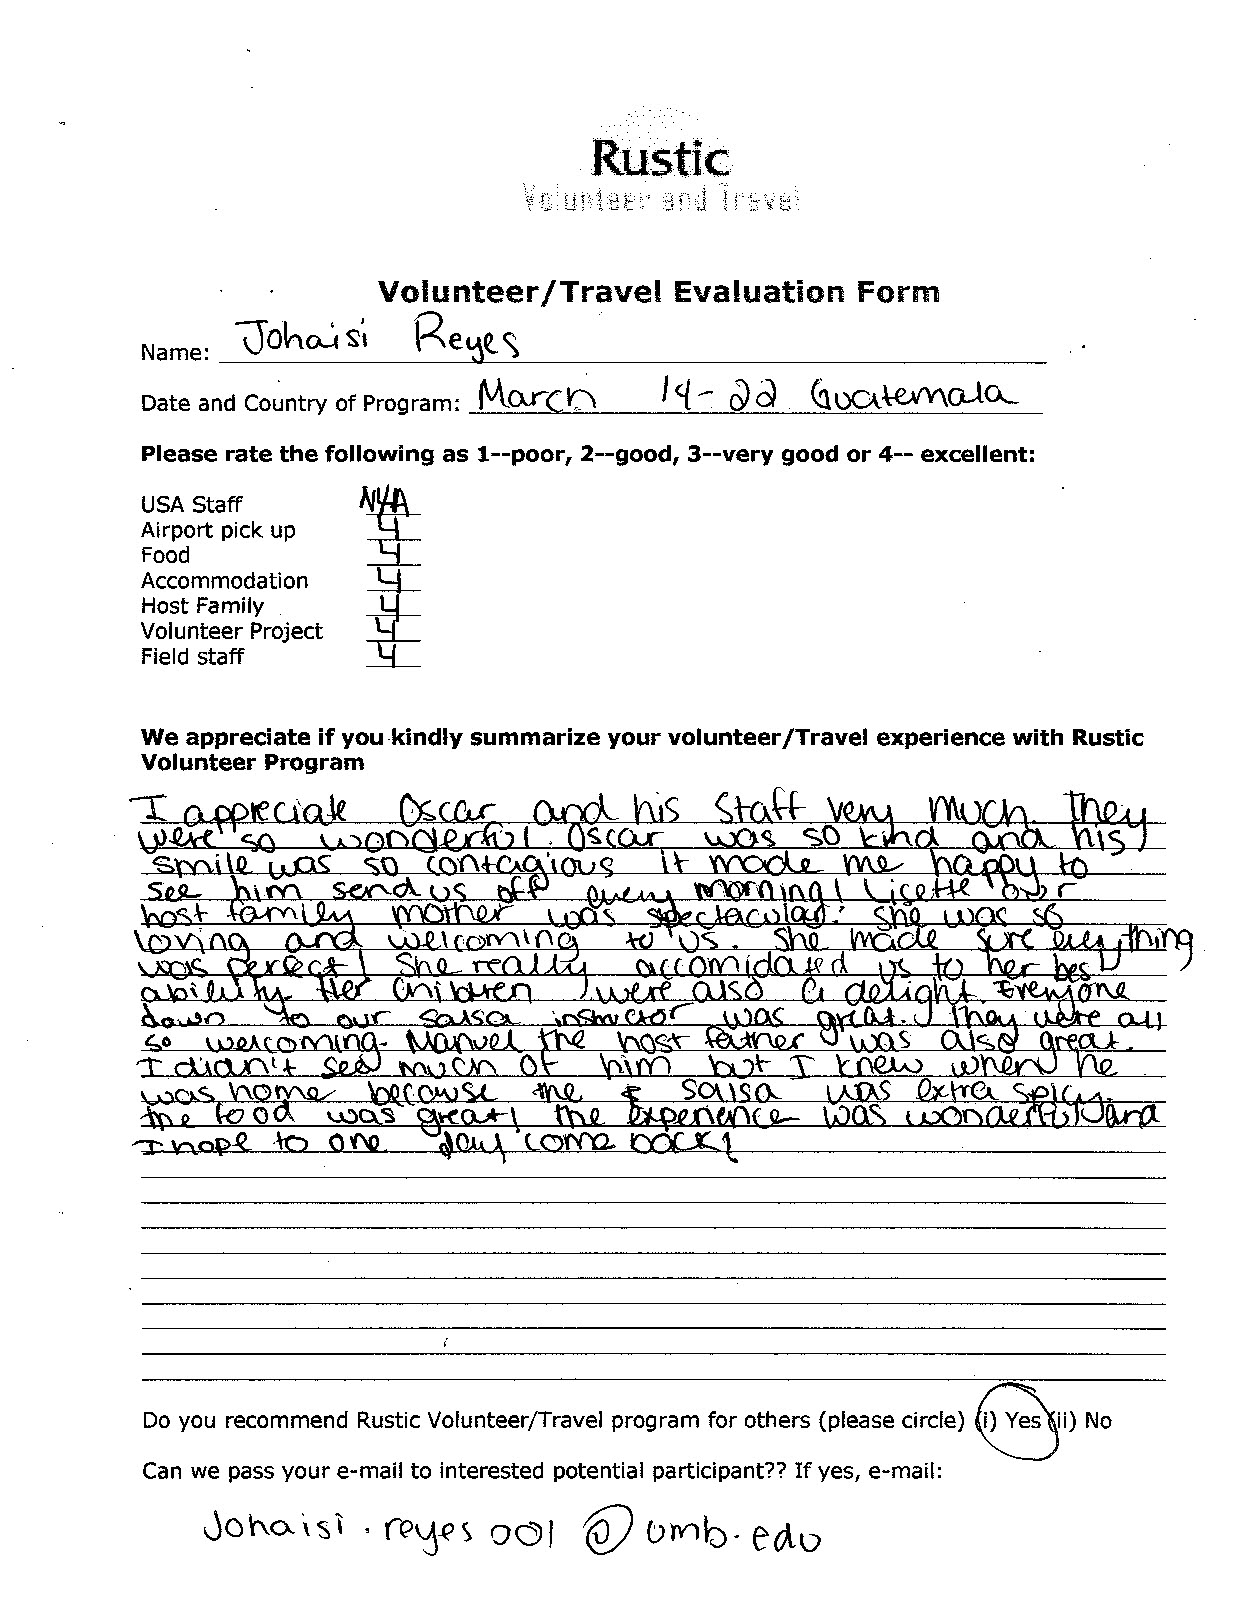 Rustic
Volunteer and Travel
Volunteer/Travel Evaluation Form
Name: Johaisi Reyes
Date and Country of Program: March 14-22 Guatemala
Please rate the following as 1--poor, 2--good, 3--very good or 4-- excellent:
USA Staff N/A
Airport pick up 4
Food 4
Accommodation 4
Host Family 4
Volunteer Project 4
Field staff 4
We appreciate if you kindly summarize your volunteer/Travel experience with Rustic
Volunteer Program
I appreciate Oscar and his staff very much. They
were so wonderful. Oscar was so kind and his
smile was so contagious it made me happy to
see him send us off every morning! Licette our
host family mother was spectacular. She was so
loving and welcoming to us. She made sure everything
was perfect! She really accomidated us to her best
ability. Her children were also a delight. Everyone
down to our salsa instructor was great. They were all
so welcoming. Manuel the host father was also great.
I didn't see much of him but I knew when he
was home because the salsa was extra spicy.
The food was great! The experience was wonderful and
I hope to one day come back!
Do you recommend Rustic Volunteer/Travel program for others (please circle) (i) Yes (ii) No
Can we pass your e-mail to interested potential participant?? If yes, e-mail:
Johaisi.reyes001@umb.edu